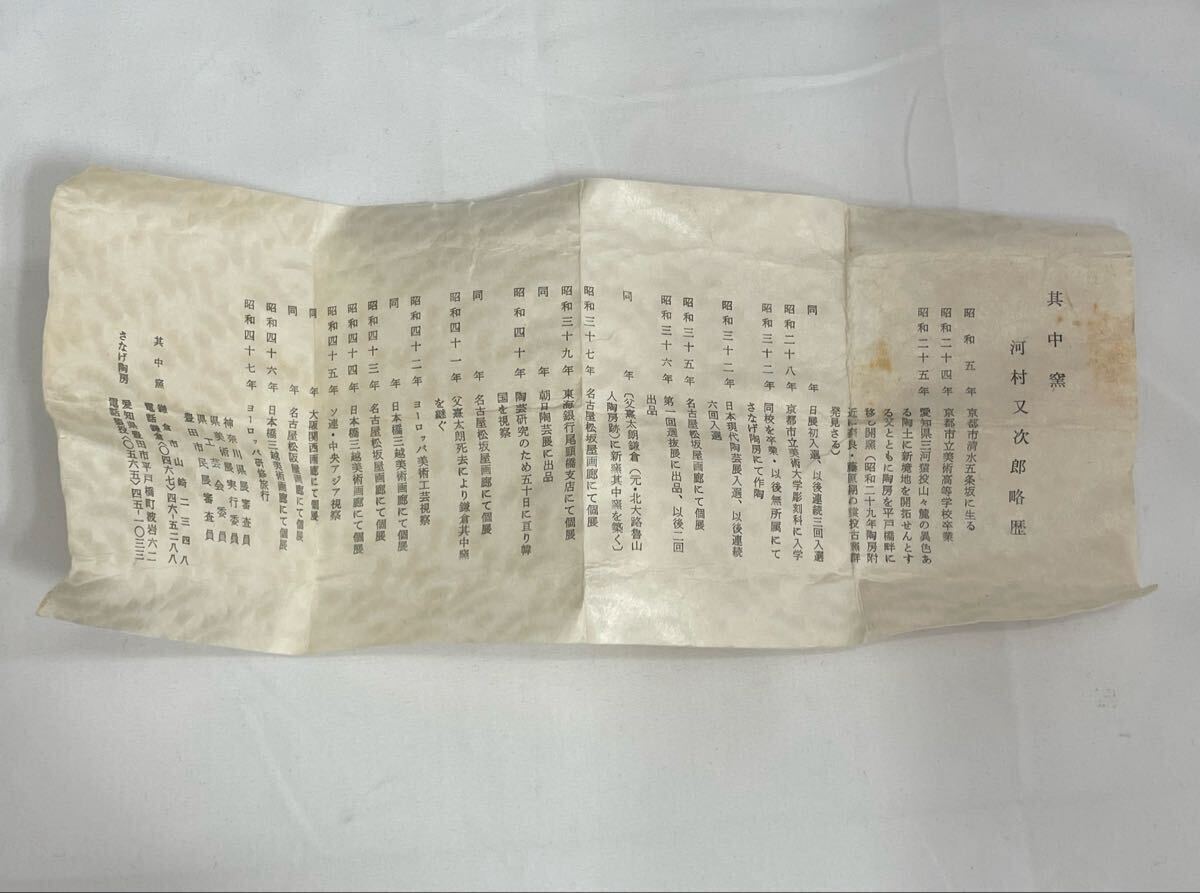 其中窯
河村又次郎略歴
昭和五年 京都市清水五条坂に生る
昭和二十四年 京都市立美術高等学校卒業
昭和二十五年 愛知県三河猿投山々麓の異色あ
る陶土に新境地を開拓せんとす
る父とともに陶房を平戸橋畔に
移し開窯(昭和二十九年陶房附
近に奈良・藤原期の猿投古窯群
発見さる)
同年 日展初入選、以後連続三回入選
昭和二十八年 京都市立美術大学彫刻科に入学
昭和三十二年 同校を卒業・以後無所属にて
さなげ陶房にて作陶
昭和三十二年 日本現代陶芸展入選、以後連続
六回入選
昭和三十五年 名古屋松坂屋画廊にて個展
昭和三十六年 第一回選抜展に出品、以後二回
出品
同年 (父熹太朗鎌倉(元・北大路魯山
人陶房跡)に新窯其中窯を築く)
昭和三十七年 名古屋松坂屋画廊にて個展
昭和三十九年 東海銀行尾頭橋支店にて個展
同年 朝日陶芸展に出品
昭和四十年 陶芸研究のため五十日に亘り韓
国を視察
同年 名古屋松坂屋画廊にて個展
昭和四十一年 父熹太朗死去により鎌倉其中窯
を継ぐ
昭和四十二年 ヨーロッパ美術工芸視察
同年 日本橋三越美術画廊にて個展
昭和四十三年 名古屋松坂屋画廊にて個展
昭和四十四年 日本橋三越美術画廊にて個展
昭和四十五年 ソ連・中央アジア視察
同年 大阪関西画廊にて個展
同年 名古屋松坂屋画廊にて個展
昭和四十六年 日本橋三越美術画廊にて個展
昭和四十七年 ヨーロッパ研修旅行
神奈川県展審査員
県美術展実行委員
県工芸会委員
豊田市民展審査員
其中窯 鎌倉市山崎二三四八
電話鎌倉(〇四六七)四六-五二八八
さなげ陶房 愛知県豊田市平戸橋町波岩六二
電話猿投(〇五六五)四五-一〇三三